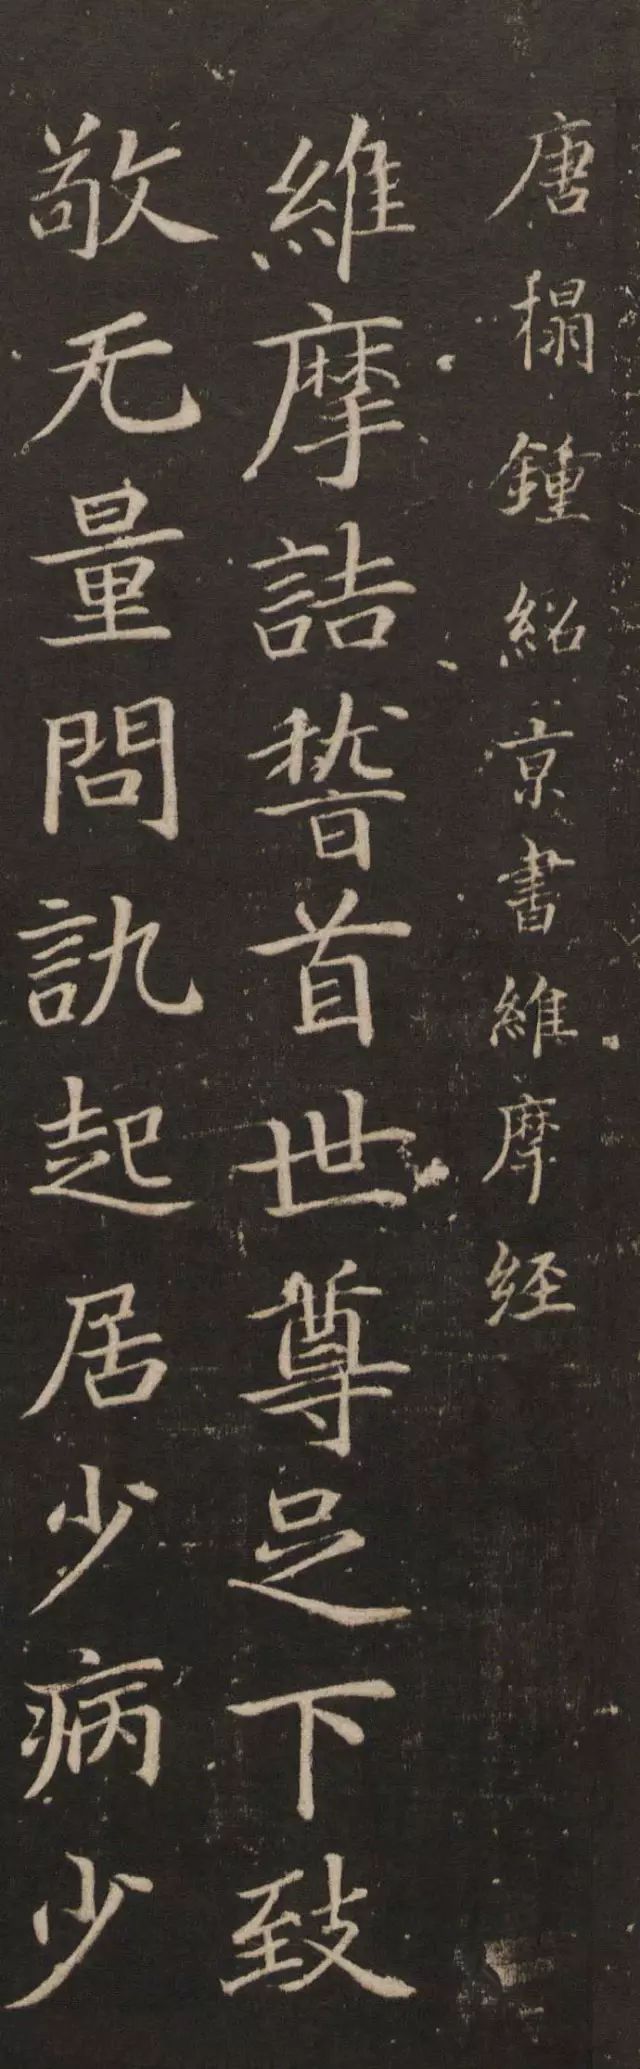 唐榻鍾紹京書維摩经
維摩詰稽首世尊足下致
敬无量問訊起居少病少